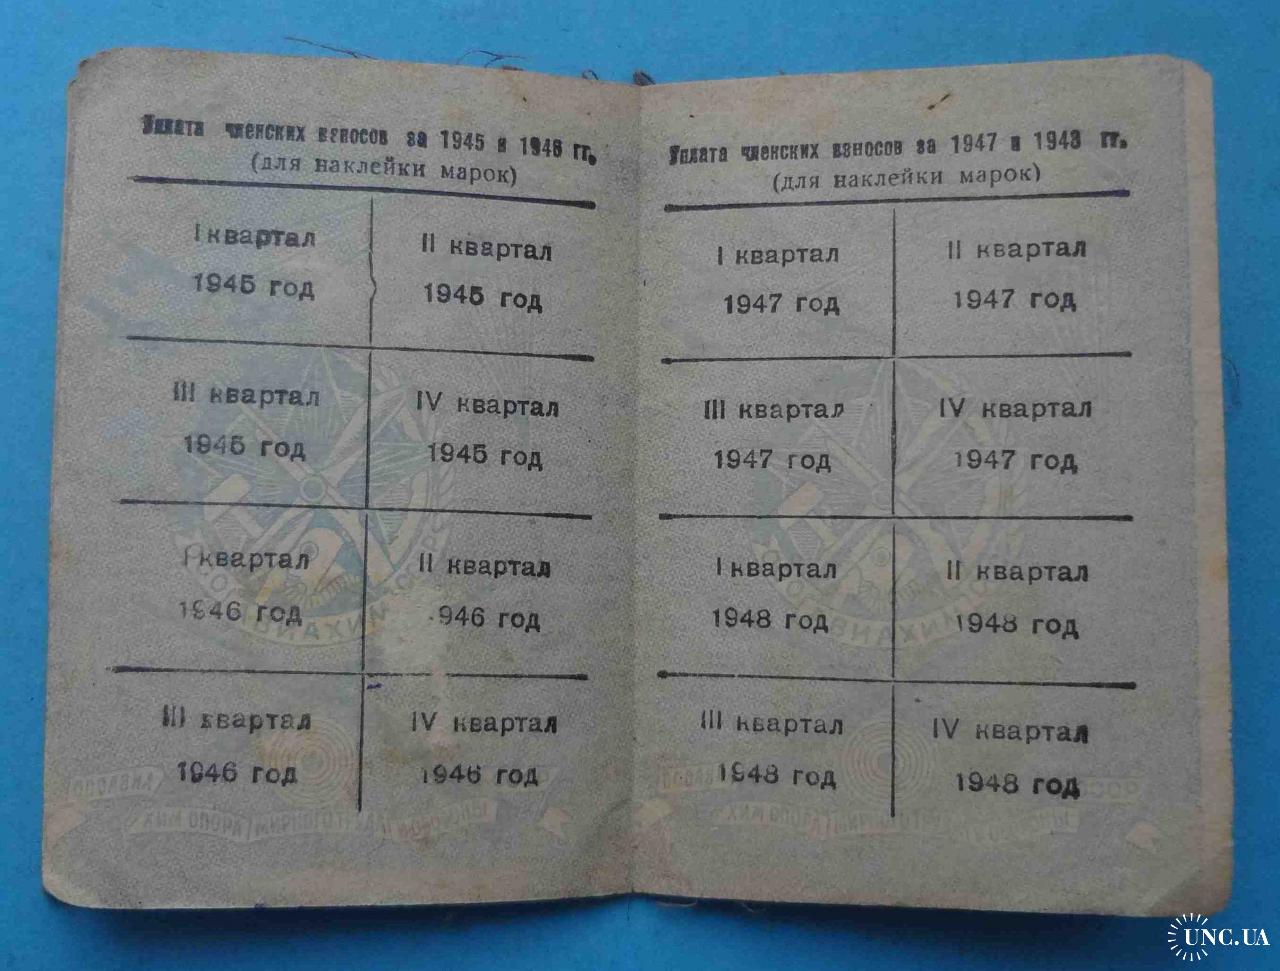 Уплата членских взносов за 1945 и 1946 гг.
(для наклейки марок)
I квартал
1945 год
II квартал
1945 год
III квартал
1945 год
IV квартал
1945 год
I квартал
1946 год
II квартал
946 год
III квартал
1946 год
IV квартал
1946 год
Уплата членских взносов за 1947 и 1948 гг.
(для наклейки марок)
I квартал
1947 год
II квартал
1947 год
III квартал
1947 год
IV квартал
1947 год
I квартал
1948 год
II квартал
1948 год
III квартал
1948 год
IV квартал
1948 год
UNC.UA